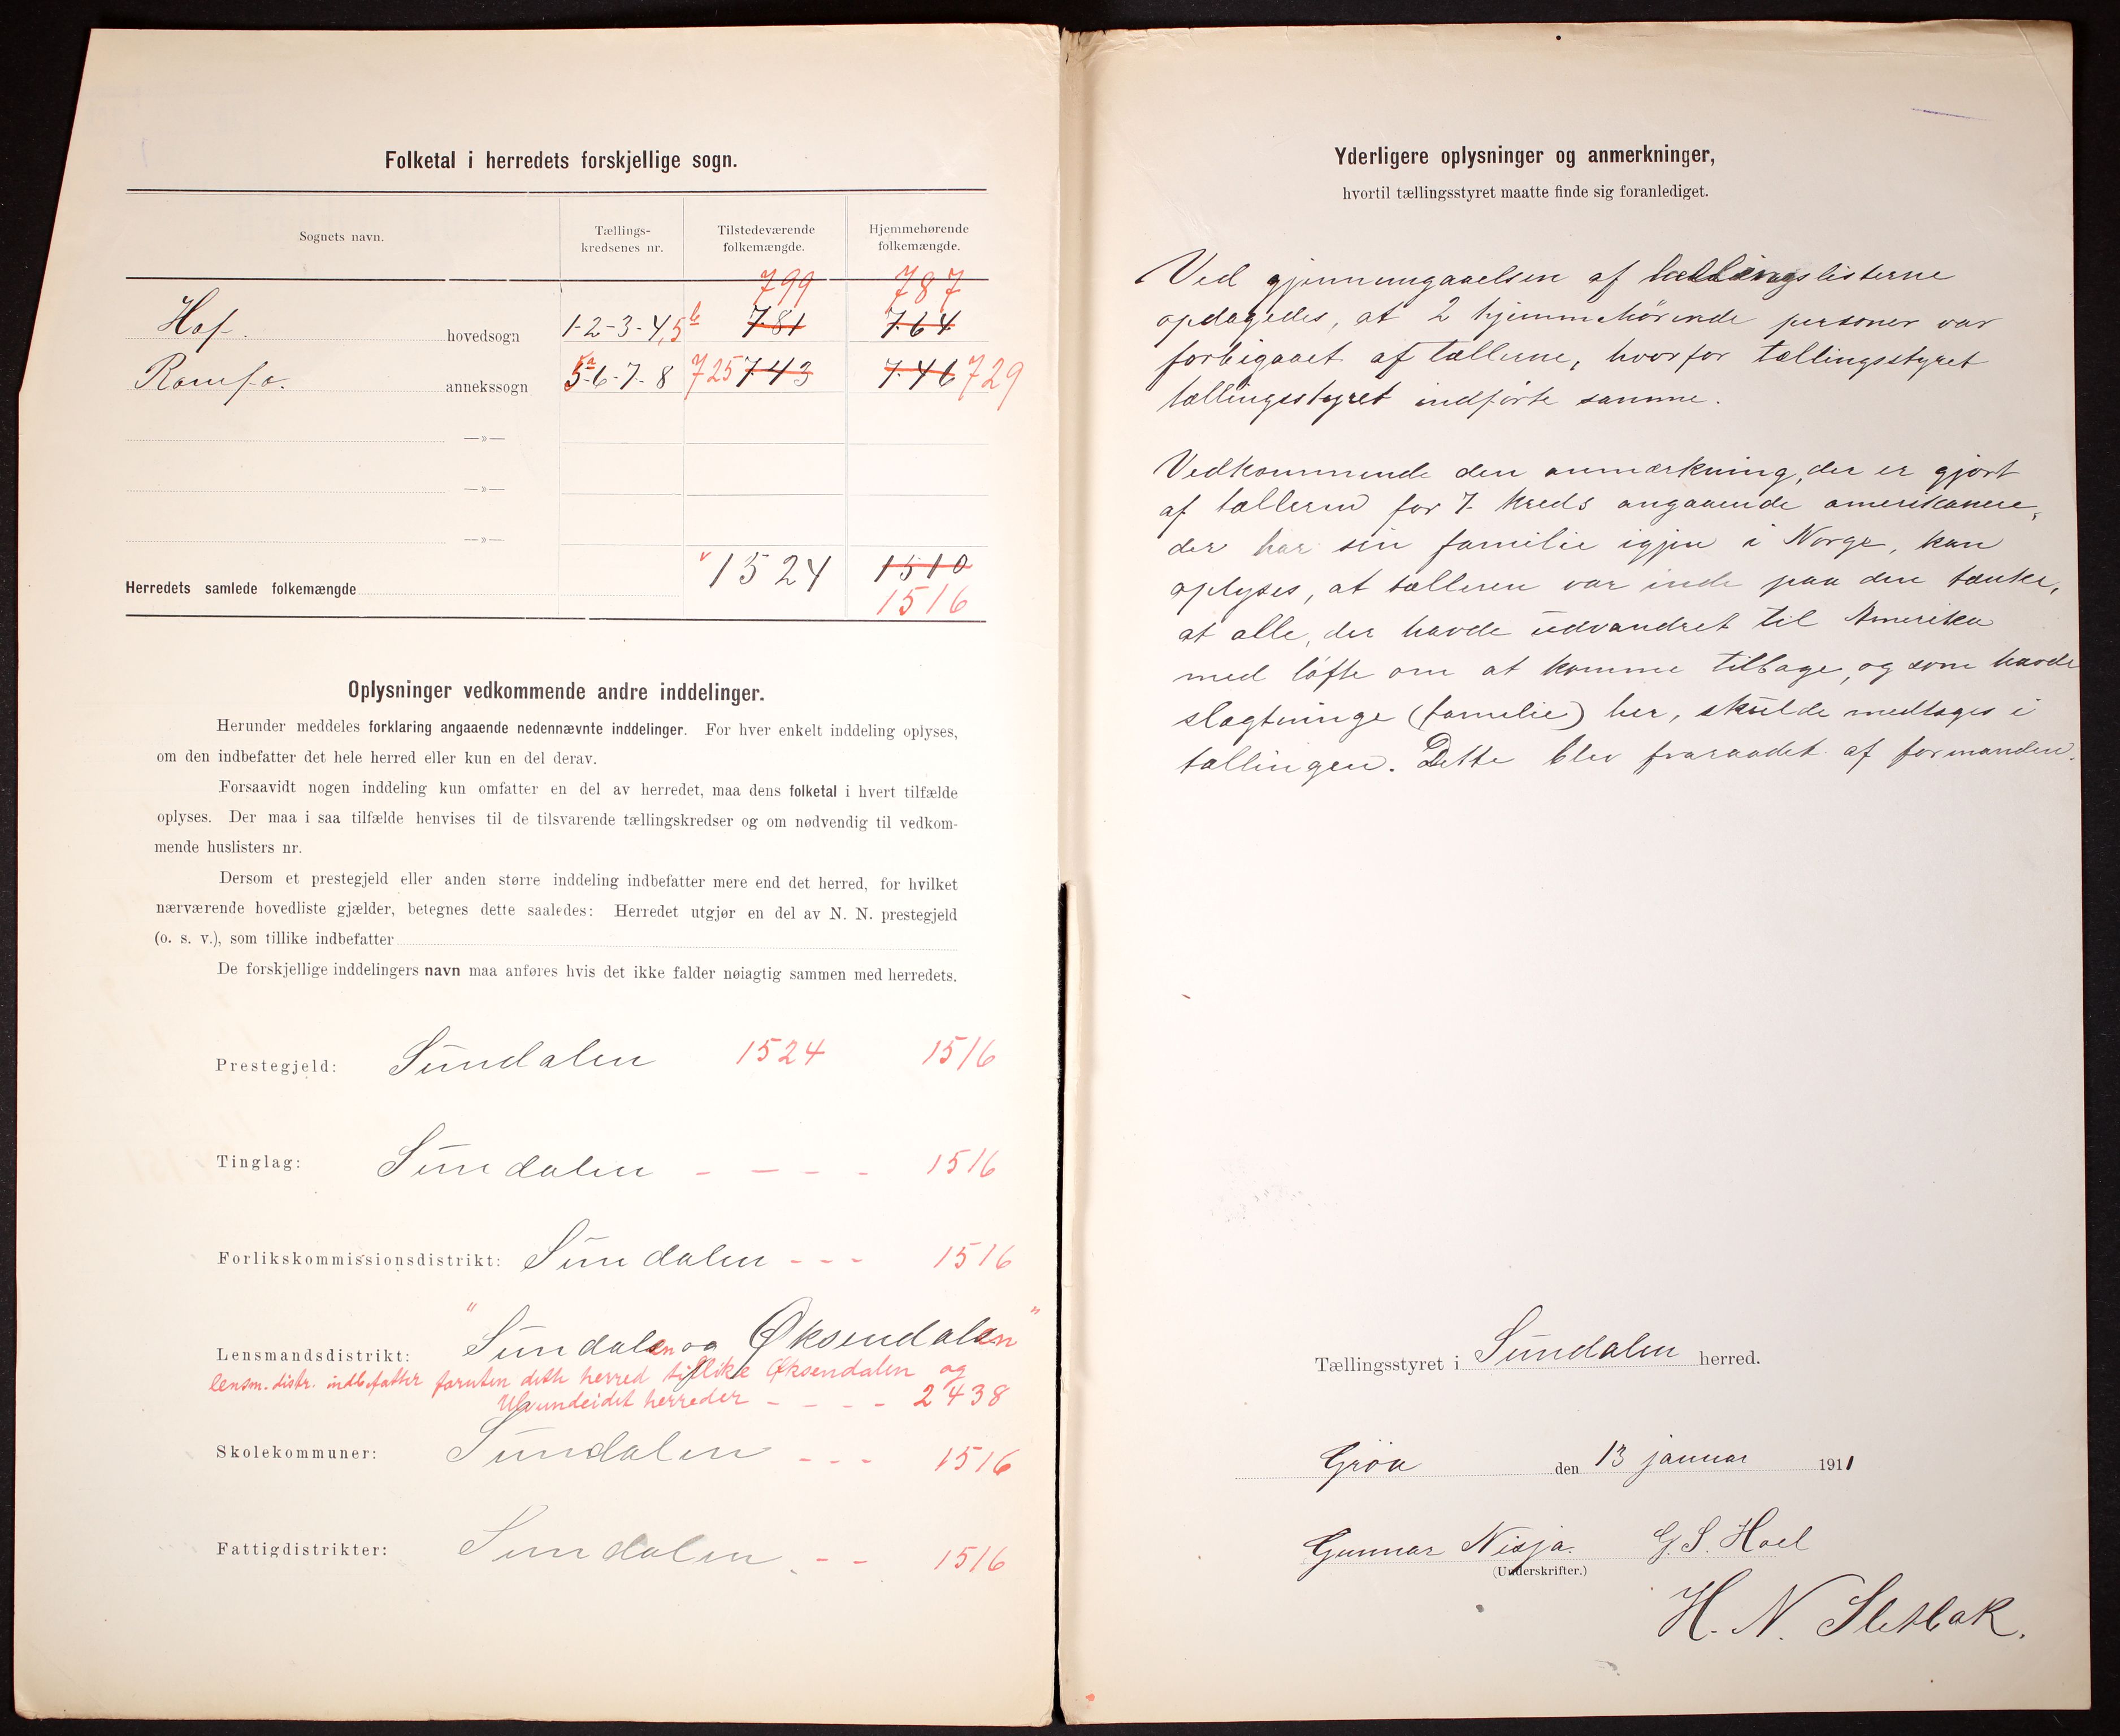 Folketal i herredets forskjellige sogn.
Sognets navn.
Tællings-
kredsenes nr.
Tilstedeværende
folkemængde.
Hjemmehørende
folkemængde.
799 787
Hof hovedsogn 1-2-3-4,5b 781 764
Romfo. annekssogn 5a-6-7-8 725 743 746 729
—»—
—»—
—»—
Herredets samlede folkemængde v 1524 1510
1516
Oplysninger vedkommende andre inddelinger.
Herunder meddeles forklaring angaaende nedennævnte inddelinger. For hver enkelt inddeling oplyses,
om den indbefatter det hele herred eller kun en del derav.
Forsaavidt nogen inddeling kun omfatter en del av herredet, maa dens folketal i hvert tilfælde
oplyses. Der maa i saa tilfælde henvises til de tilsvarende tællingskredser og om nødvendig til vedkom-
mende huslisters nr.
Dersom et prestegjeld eller anden større inddeling indbefatter mere end det herred, for hvilket
nærværende hovedliste gjælder, betegnes dette saaledes: Herredet utgjør en del av N. N. prestegjeld
(o. s. v.), som tillike indbefatter
De forskjellige inddelingers navn maa anføres hvis det ikke falder nøiagtig sammen med herredets.
Prestegjeld: Sundalen 1524 1516
Tinglag: Sundalen - - - - 1516
Forlikskommissionsdistrikt: Sundalen - - - 1516
Lensmandsdistrikt: "Sundalen og Øksendalen"
lensm. distr. indbefatter foruten dette herred tillike Øksendalen og
Ulvundeidet herreder - - - - 2438
Skolekommuner: Sundalen - - - 1516
Fattigdistrikter: Sundalen - - 1516
Yderligere oplysninger og anmerkninger,
hvortil tællingsstyret maatte finde sig foranlediget.
Ved gjennemgaaelsen af tællingslisterne
opdagedes, at 2 hjemmehørende personer var
forbigaaet af tællerne, hvorfor tællingsstyret
tællingsstyret indførte samme.
Vedkommende den anmærkning, der er gjort
af tælleren for 7. kreds angaaende amerikanere,
der har sin familie igjen i Norge, kan
oplyses, at tælleren var inde paa den tanke,
at alle, der havde udvandret til Amerika
med løfte om at komme tilbage, og som havde
slægtninge (familie) her, skulde medtages i
tællingen. Dette blev fraraadet af formanden.
Tællingsstyret i Sundalen herred.
Grøa den 13 januar 1911
Gunnar Nisja. G. S. Hoel
(Underskrifter.)
H. N. Sletbak.